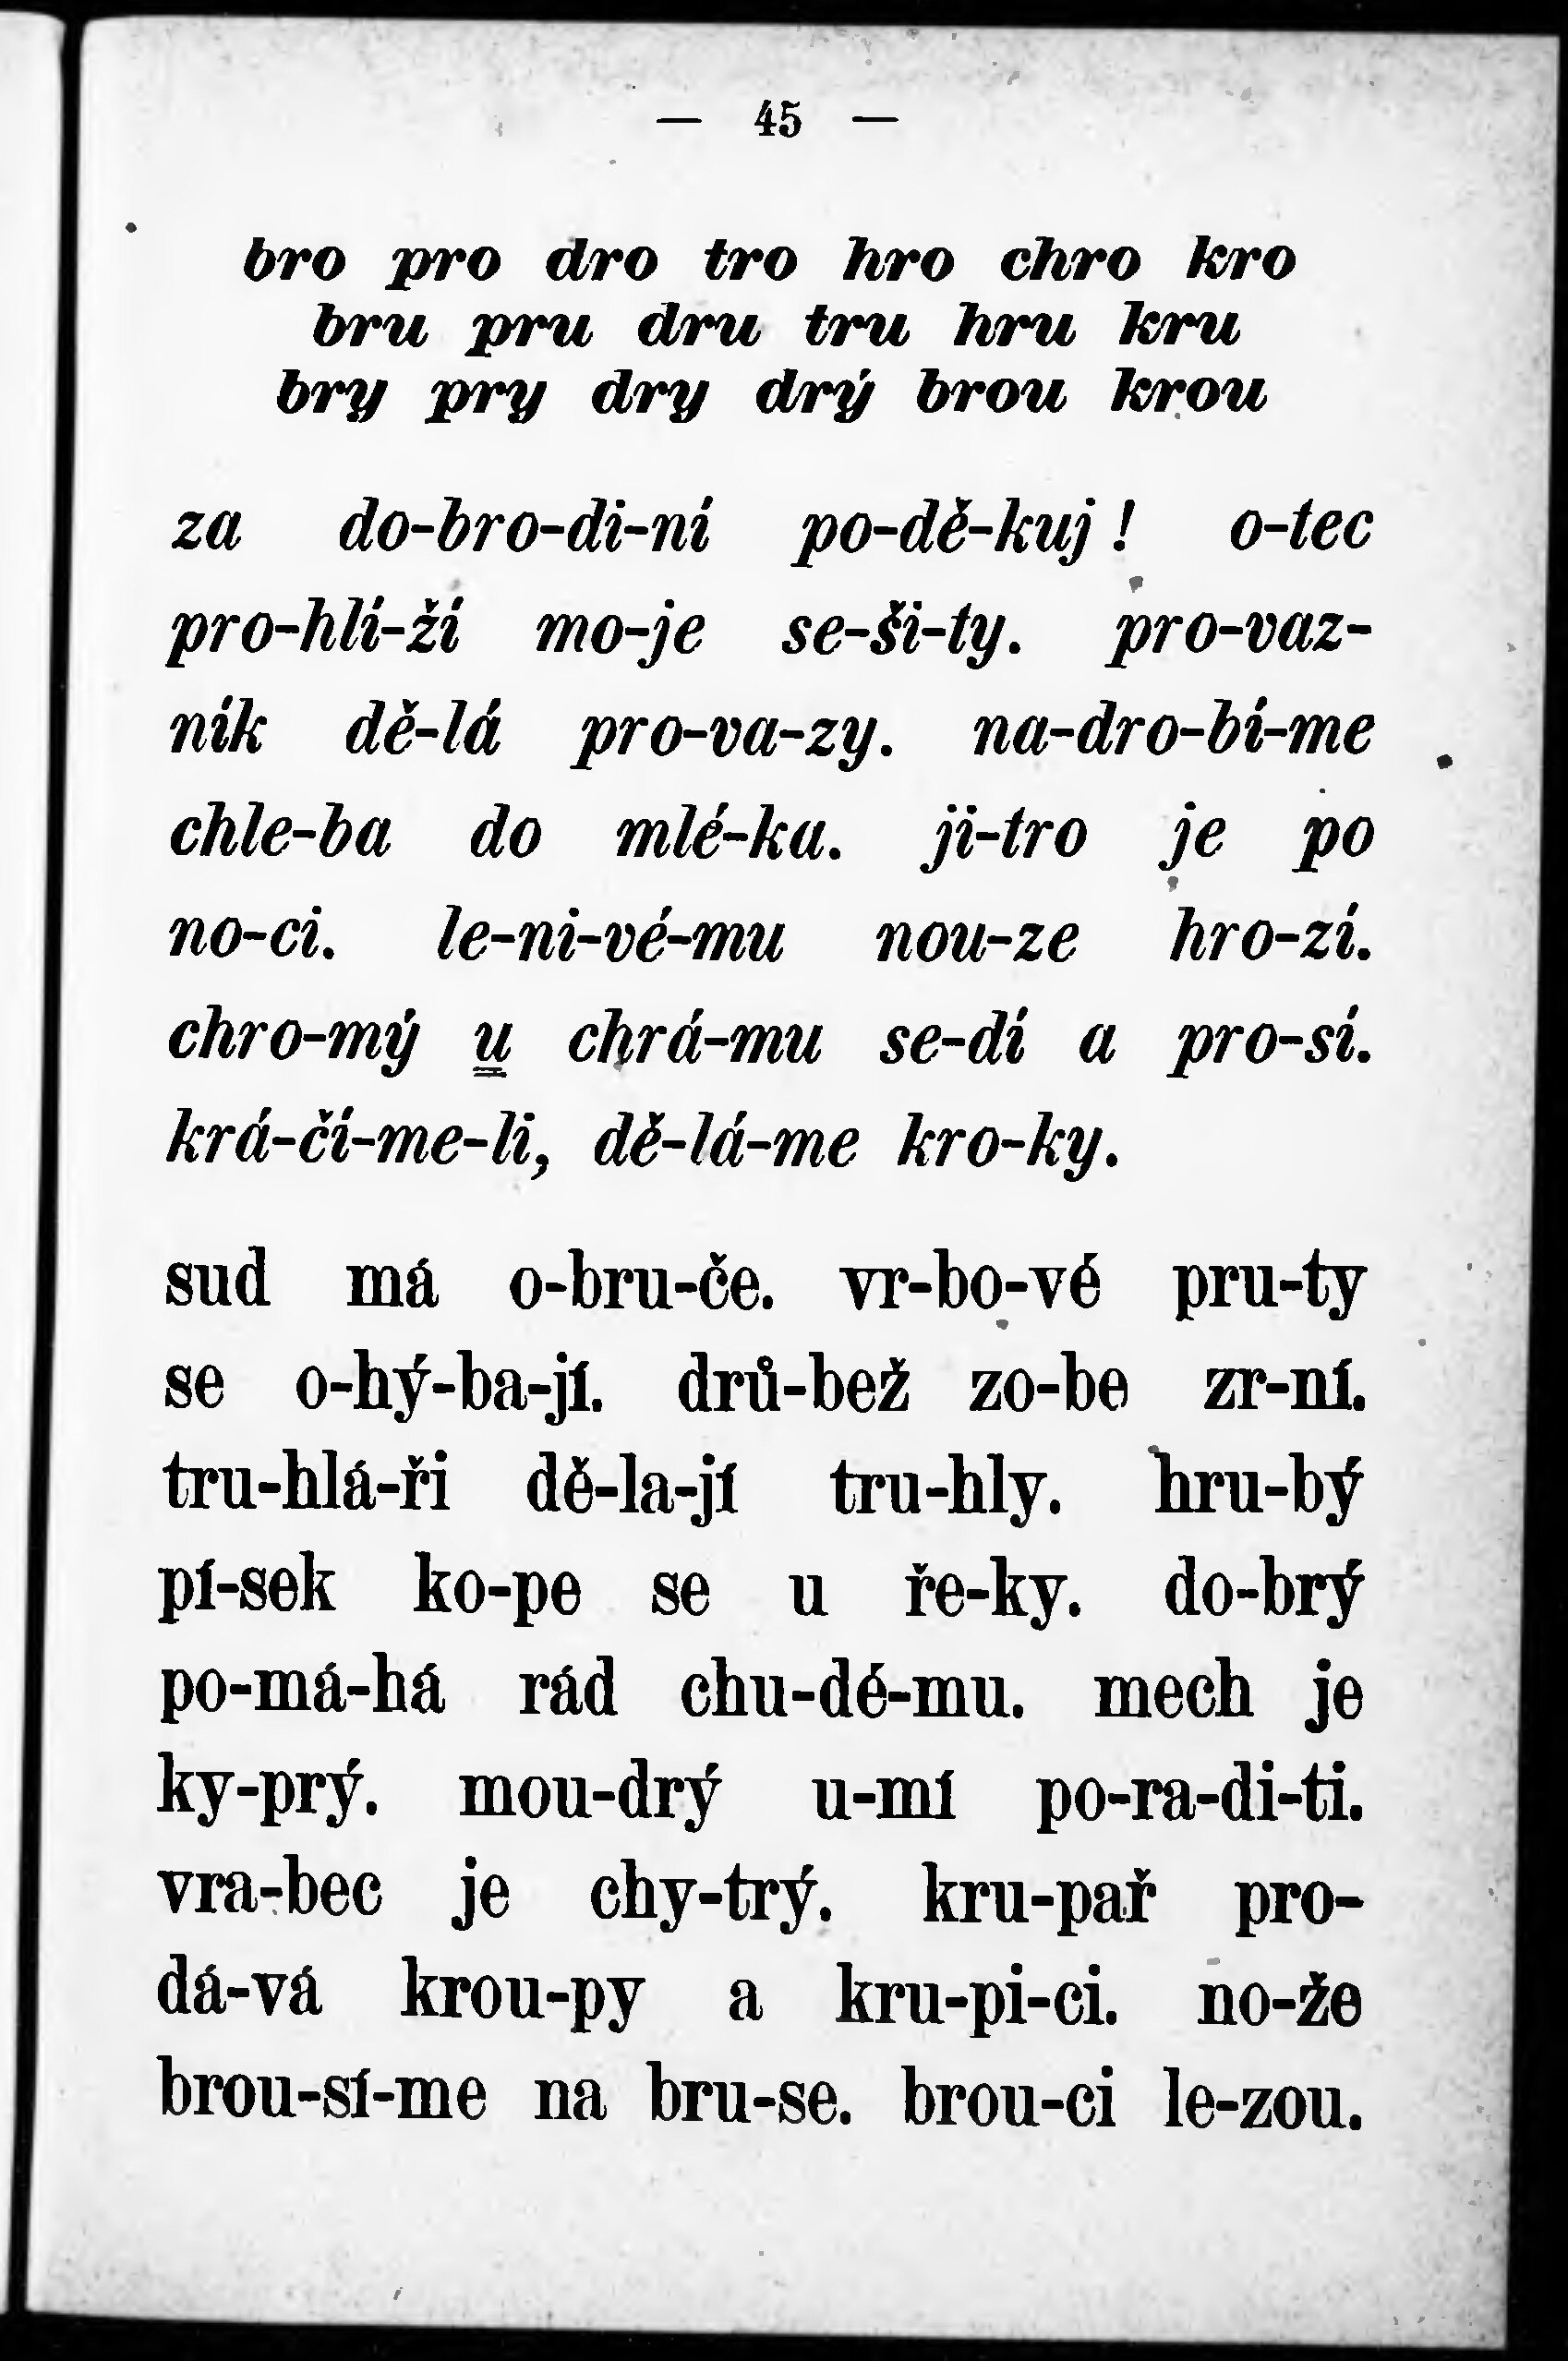 — 45 —
bro pro dro tro hro chro kro
bru pru dru tru hru kru
bry pry dry drý brou krou
za do-bro-di-ní po-dě-kuj! o-tec
pro-hlí-ží mo-je se-ši-ty. pro-vaz-
ník dě-lá pro-va-zy. na-dro-bí-me
chle-ba do mlé-ka. ji-tro je po
no-ci. le-ni-vé-mu nou-ze hro-zí.
chro-mý u chrá-mu se-dí a pro-sí.
krá-čí-me-li, dě-lá-me kro-ky.
sud má o-bru-če. vr-bo-vé pru-ty
se o-hý-ba-jí. drů-bež zo-be zr-ní.
tru-hlá-ři dě-la-jí tru-hly. hru-bý
pí-sek ko-pe se u ře-ky. do-brý
po-má-há rád chu-dé-mu. mech je
ky-prý. mou-drý u-mí po-ra-di-ti.
vra-bec je chy-trý. kru-pař pro-
dá-vá krou-py a kru-pi-ci. no-že
brou-sí-me na bru-se. brou-ci le-zou.